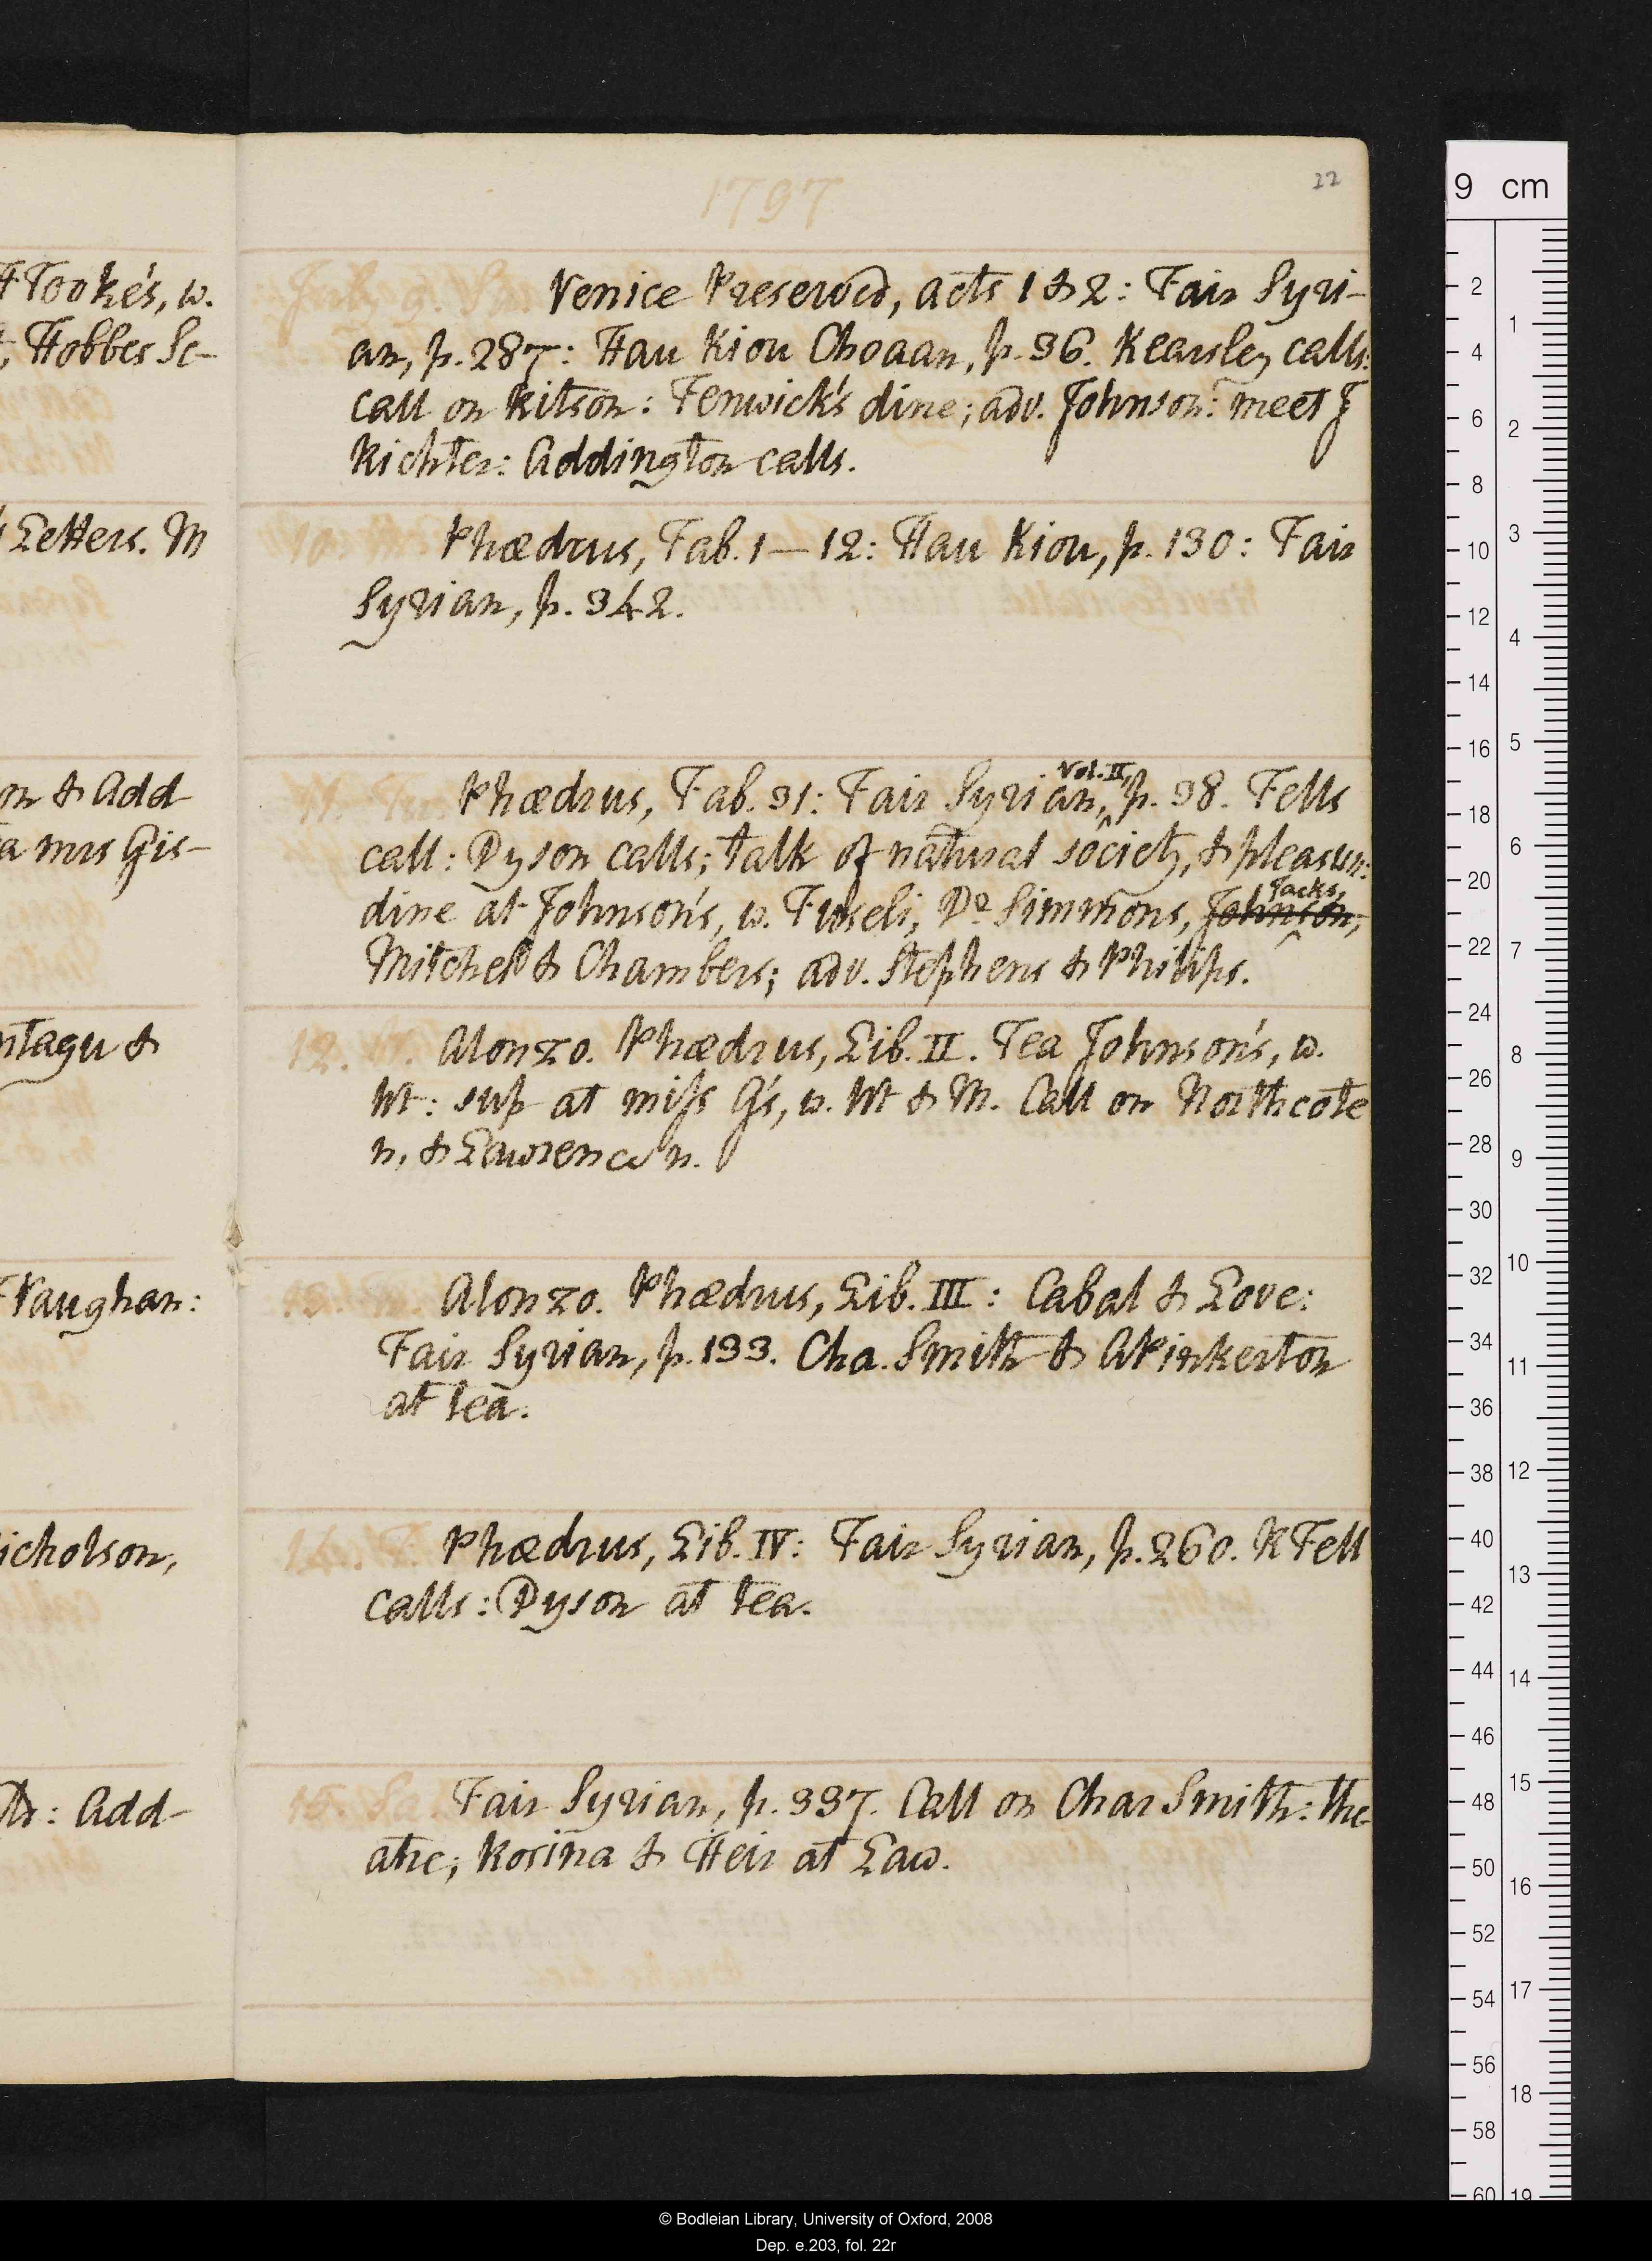 1797
22
HTooke's, w.
Hobbes Se-
Letters. M
on & Add
a mrs Gis-
ntagu &
Vaughan:
icholson,
: Add-
July 9. Su. Venice Preserved, acts 1 & 2: Fair Syri-
an, p. 287: Hau Kiou Choaan, p. 36. Kearsley calls:
call on Ritson: Fenwick's dine; adv. Johnson: meet J
Richter: Addington calls.
10. Phædrus, Fab. 1—12: Hau Kiou, p. 130: Fair
Syrian, p. 342.
11. Tu. Phædrus, Fab. 31: Fair Syrian, Vol. II, p. 38. Fells
call: Dyson calls; talk of natural society, & pleasur:
dine at Johnson's, w. Fuseli, Dr Simmons, Johnson, Jacks,
Mitchel & Chambers; adv. Stephens & Philips.
12. W. Alonzo. Phædrus, Lib. II. Tea Johnson's, w.
Wt: sup at miss G's, w. Wt & M. Call on Northcote
n, & Lawrence n.
13. Alonzo. Phædrus, Lib. III: Cabal & Love:
Fair Syrian, p. 133. Cha. Smith & APinkerton
at tea.
14. F. Phædrus, Lib. IV: Fair Syrian, p. 260. RFell
calls: Dyson at tea.
15. Sa. Fair Syrian, p. 337. Call on Char Smith: the-
atre; Rosina & Heir at Law.
9 cm
2
4
6
8
10
12
14
16
18
20
22
24
26
28
30
32
34
36
38
40
42
44
46
48
50
52
54
56
58
60
1
2
3
4
5
6
7
8
9
10
11
12
13
14
15
16
17
18
19
© Bodleian Library, University of Oxford, 2008
Dep. e.203, fol. 22r